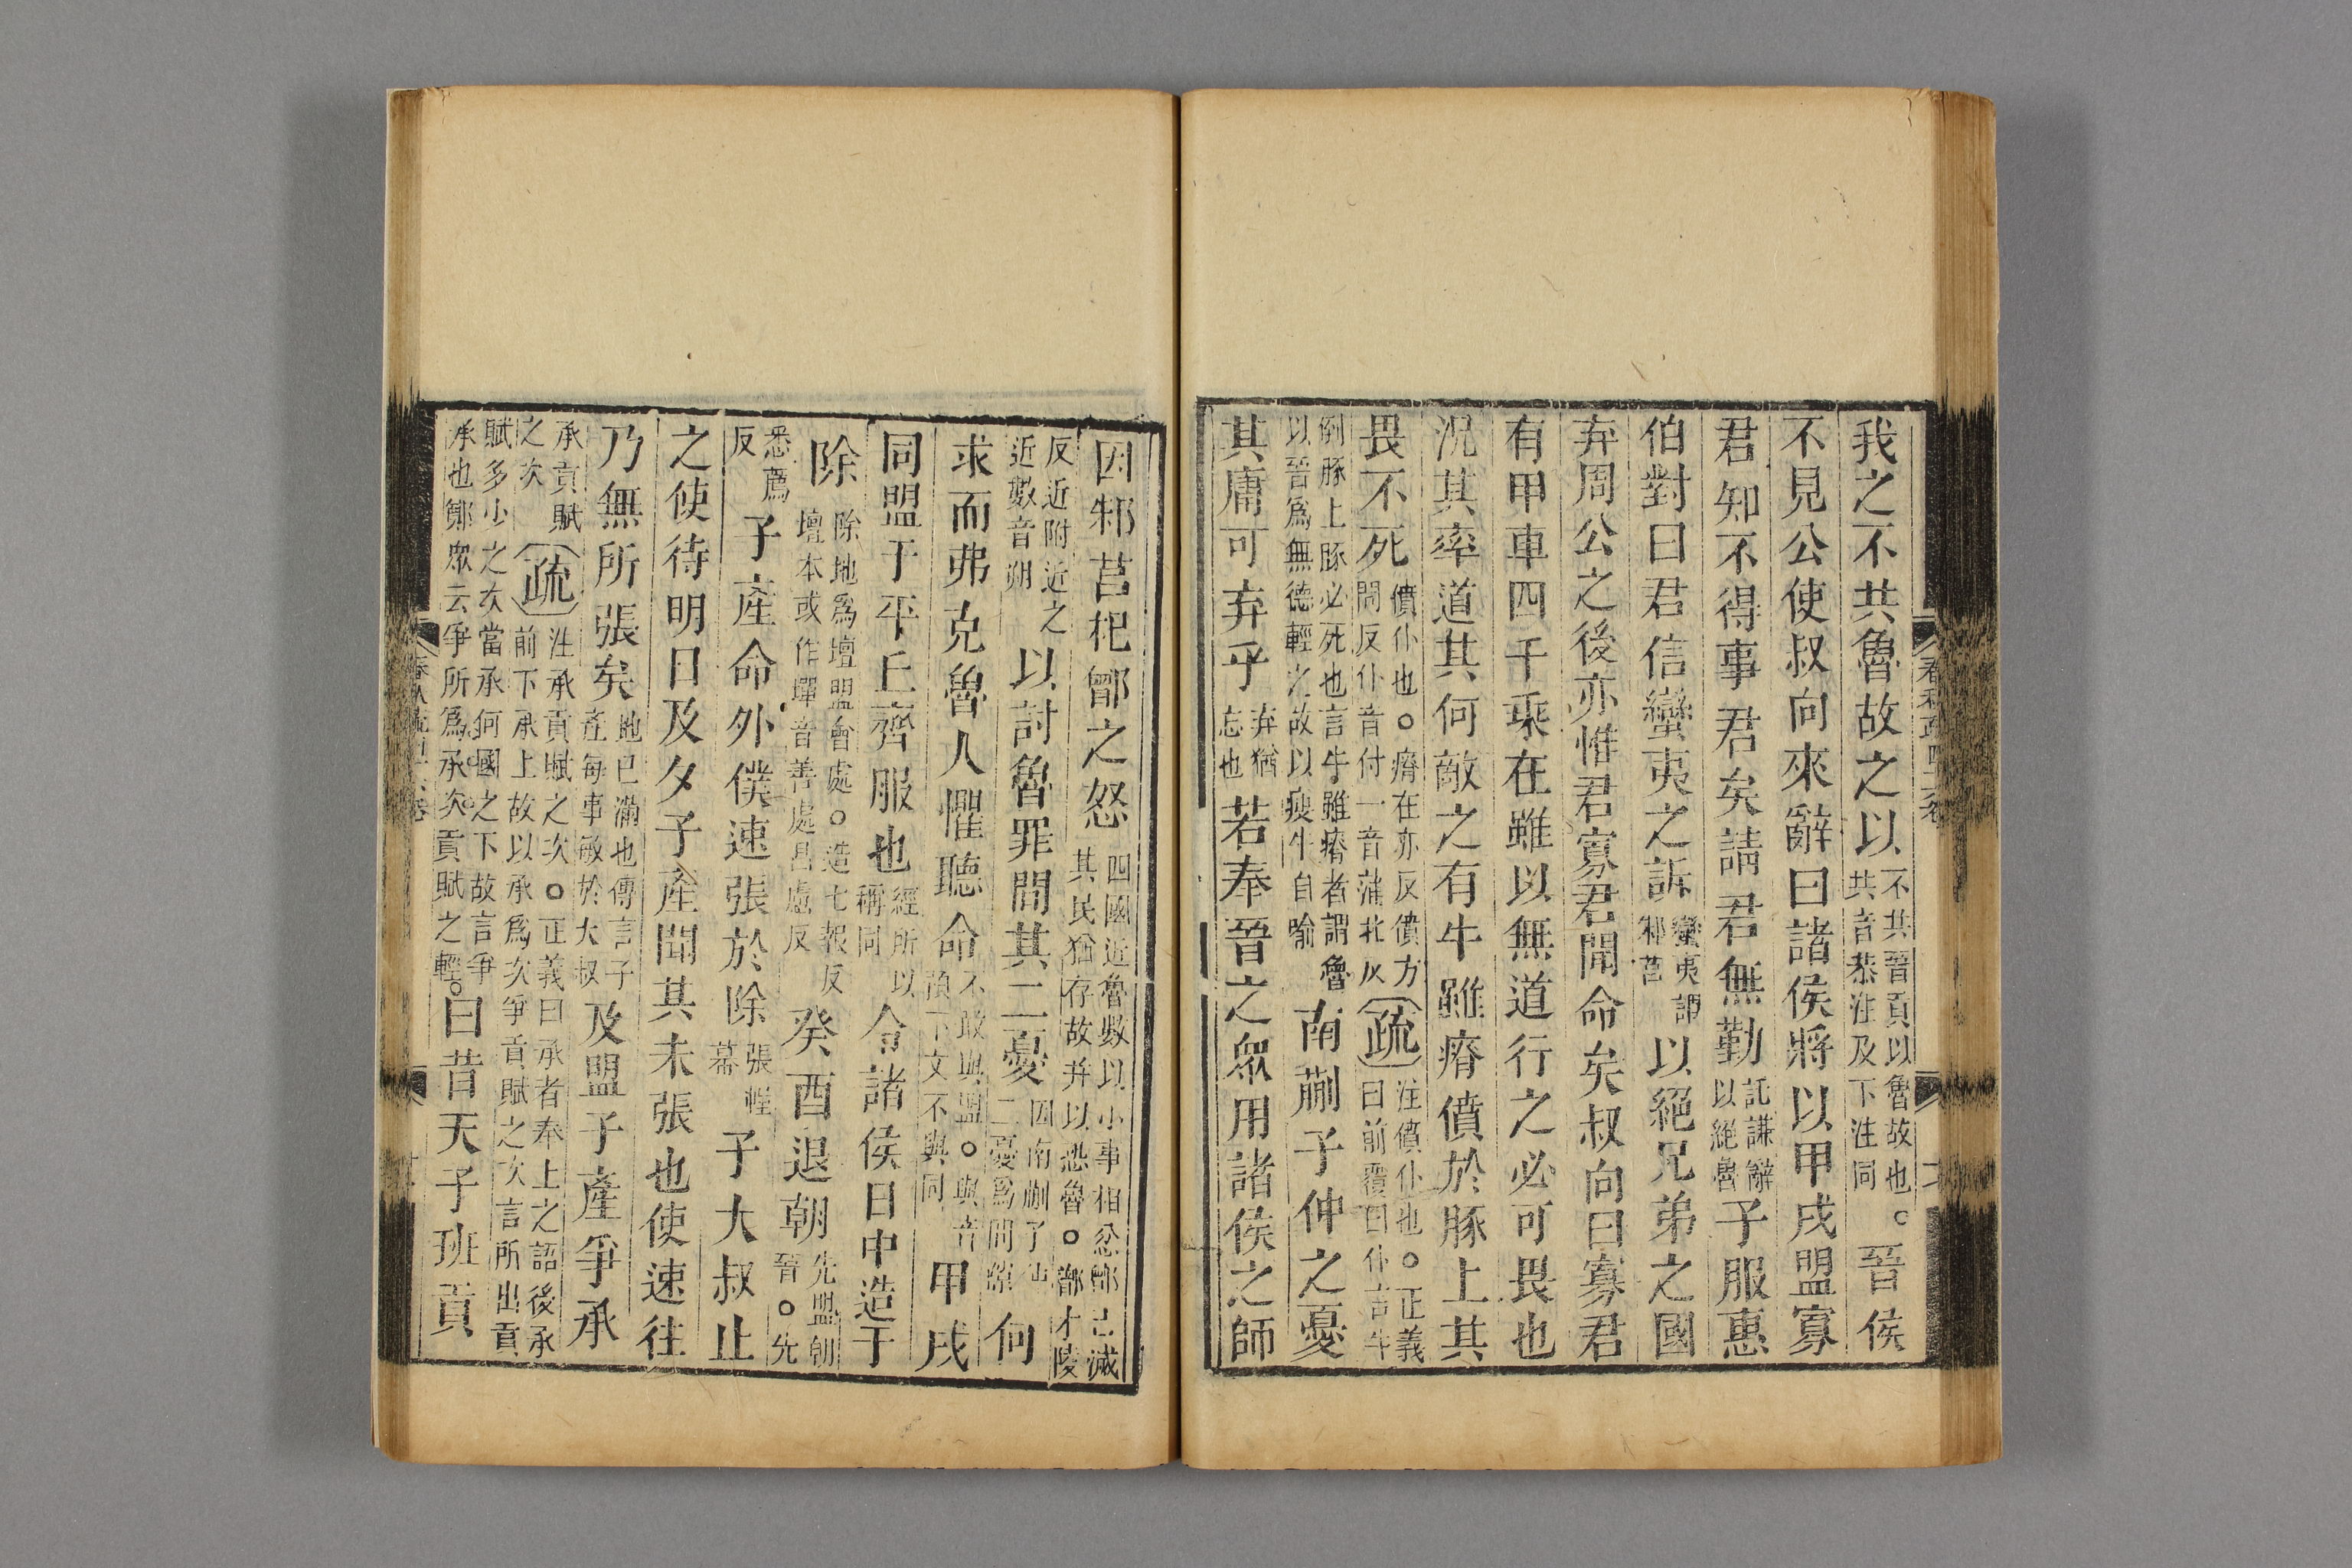 我之不共魯故之以不共晉貢以魯故也。共音恭注及下注同晉侯
不見公使叔向來辭曰諸侯將以甲戌盟寡
君知不得事君矣請君無勤託謙辭以絕魯子服惠
伯對曰君信蠻夷之訴蠻夷謂邾莒以絕兄弟之國
弃周公之後亦惟君寡君聞命矣叔向曰寡君
有甲車四千乘在雖以無道行之必可畏也
況其率道其何敵之有牛雖瘠僨於豚上其
畏不死僨仆也○瘠在亦反僨方問反仆音付一音蒲北反疏注僨仆也○正義曰前覆曰仆言牛
倒豚上豚必死也言牛雖瘠者謂魯以晉爲無德輕之故以瘦牛自喻南蒯子仲之憂
其庸可弃乎弃猶忘也若奉晉之衆用諸侯之師
因邾莒杞鄫之怒四國近魯數以小事相忿鄫已滅其民猶存故并以恐魯○鄫才陵
反近附近之近數音朔以討魯罪間其二憂因南蒯子仲二憂爲間隙何
求而弗克魯人懼聽命不敢與盟○與音預下文不與同甲戌
同盟于平丘齊服也經所以稱同令諸侯日中造于
除除地爲壇盟會處○造七報反壇本或作墠音善處昌慮反癸酉退朝先盟朝晉○先
悉薦反子產命外僕速張於除張幄幕子大叔止
之使待明日及夕子產聞其未張也使速往
乃無所張矣地已滿也傳言子產每事敏於大叔及盟子產爭承
承貢賦之次疏注承貢賦之次○正義曰承者奉上之語後承前下承上故以承爲次爭貢賦之次言所出貢
賦多少之次當承何國之下故言爭承也鄭衆云爭所爲承次貢賦之輕。曰昔天子班貢